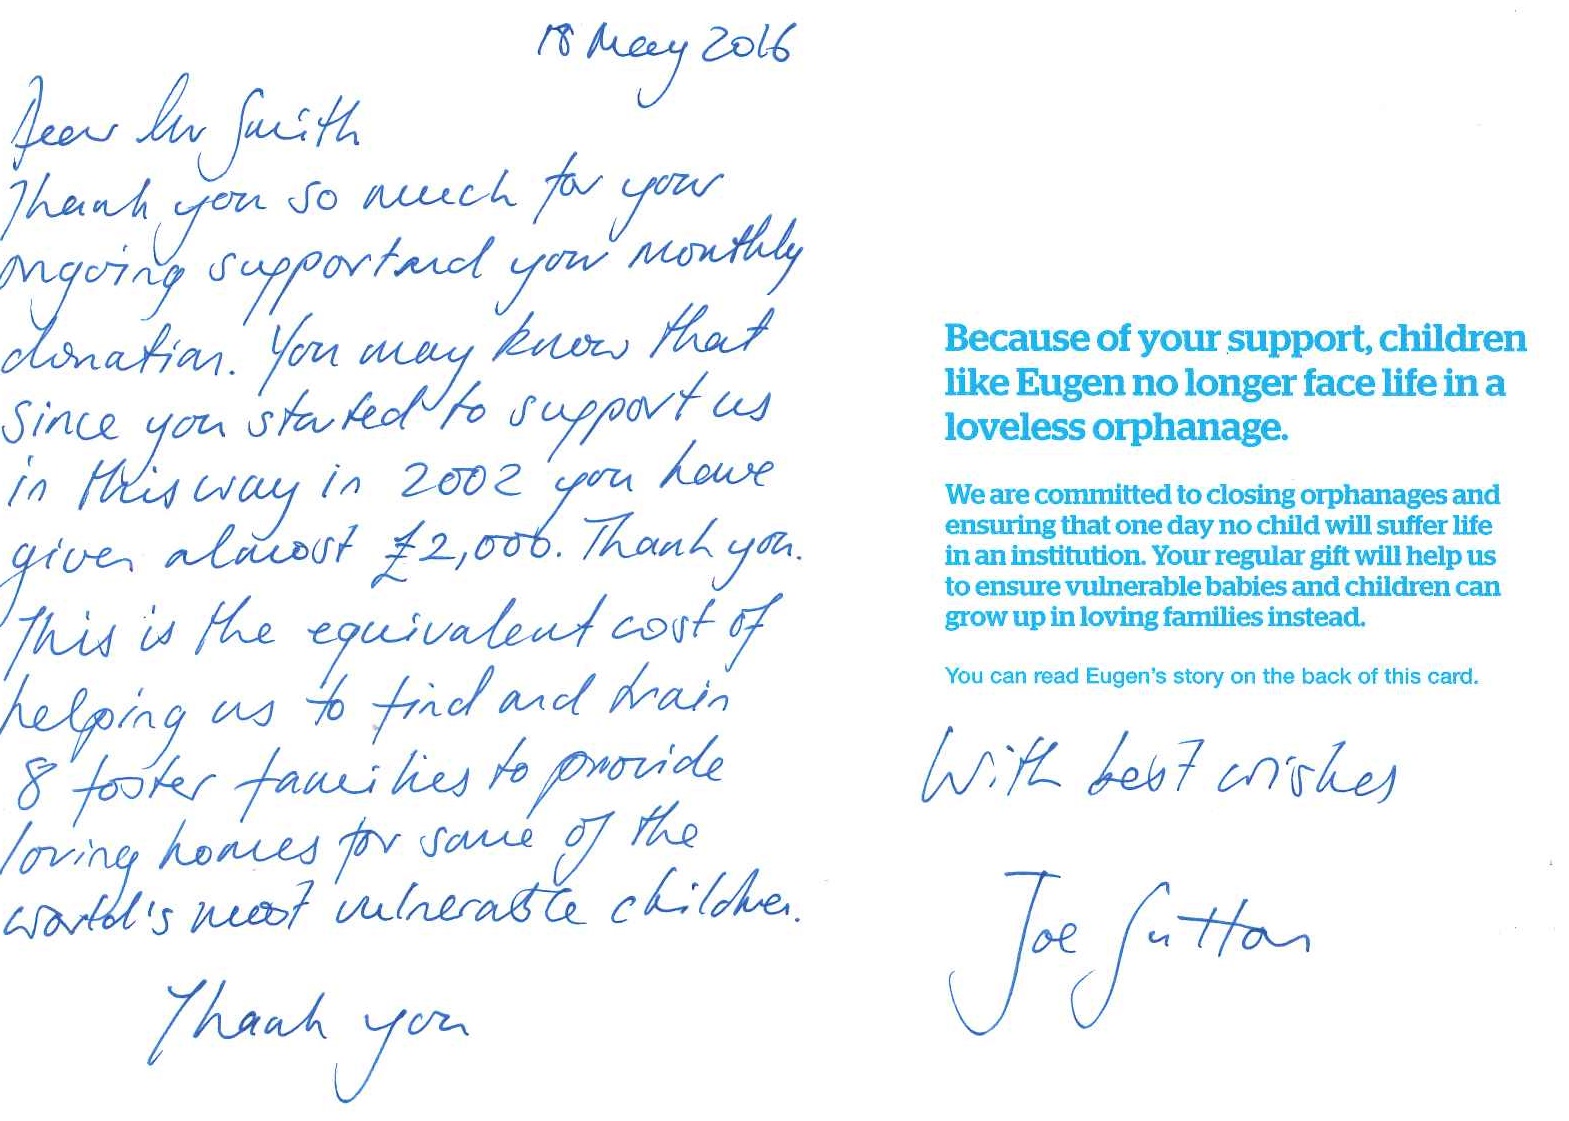 18 May 2016
Dear Mr Smith
Thank you so much for your
ongoing support and your monthly
donation. You may know that
since you started to support us
in this way in 2002 you have
given almost £2,000. Thank you.
This is the equivalent cost of
helping us to find and train
8 foster families to provide
loving homes for some of the
world's most vulnerable children.
Thank you
Because of your support, children
like Eugen no longer face life in a
loveless orphanage.
We are committed to closing orphanages and
ensuring that one day no child will suffer life
in an institution. Your regular gift will help us
to ensure vulnerable babies and children can
grow up in loving families instead.
You can read Eugen's story on the back of this card.
With best wishes
Joe Sutton